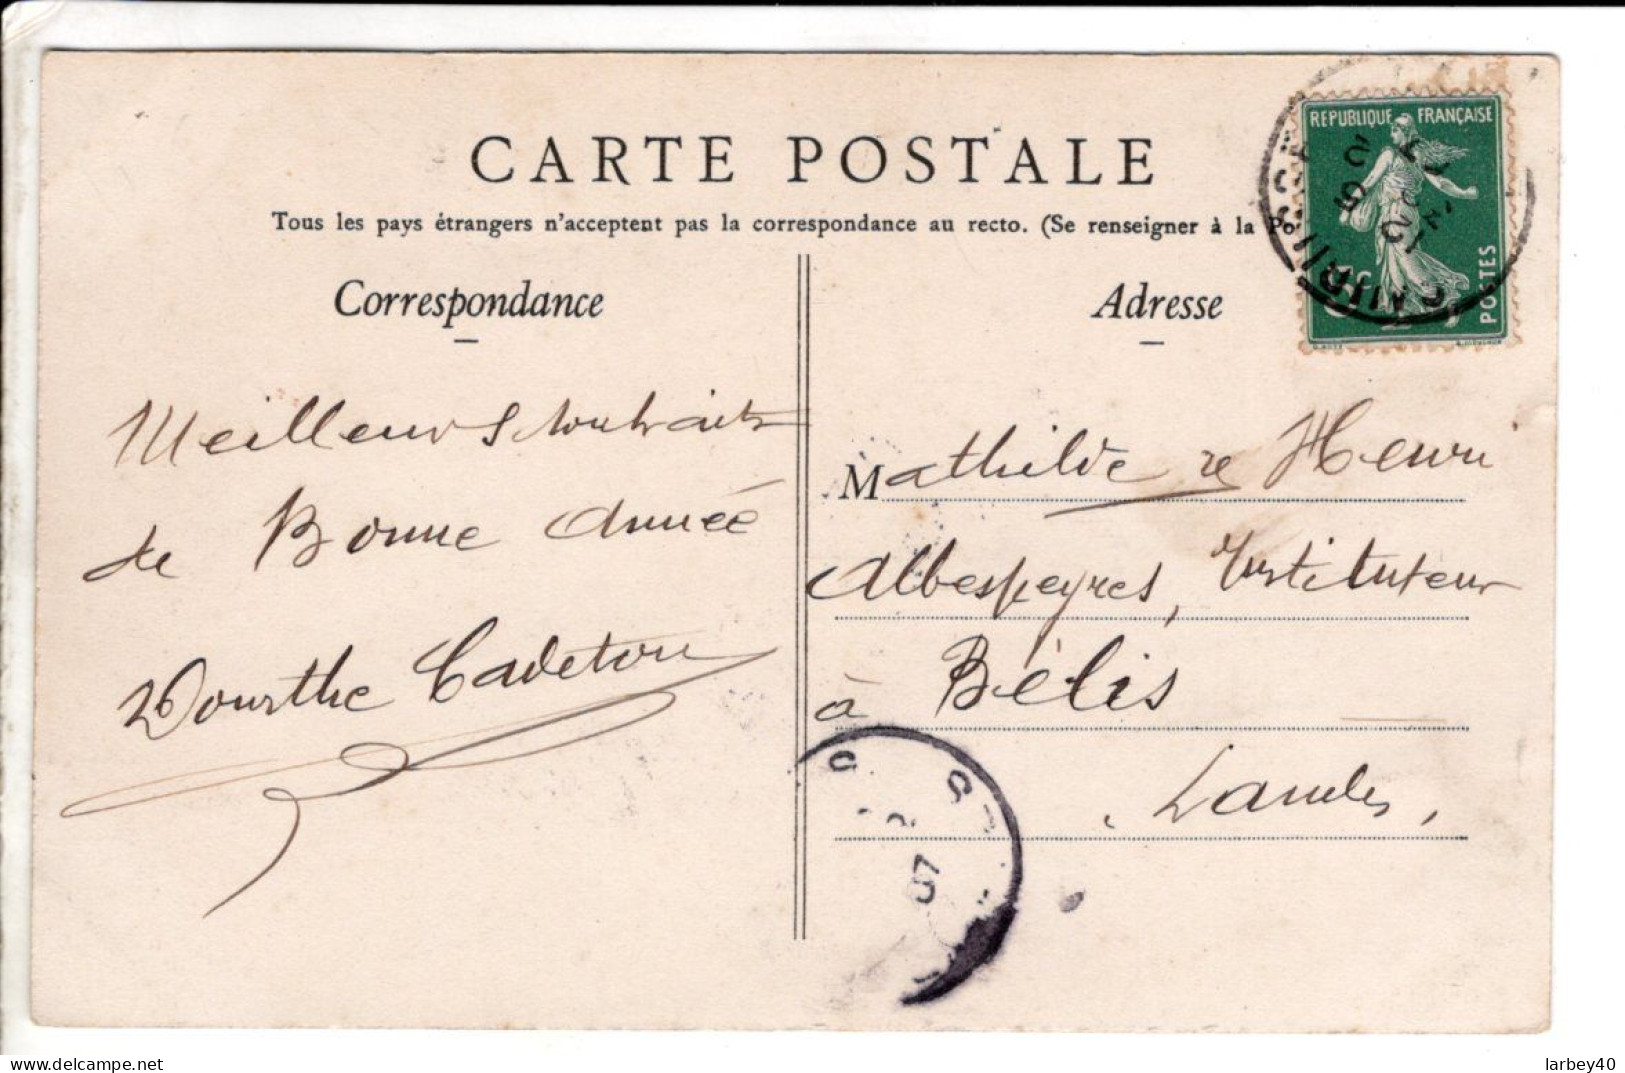 CARTE POSTALE
Tous les pays étrangers n'acceptent pas la correspondance au recto. (Se renseigner à la Po
Correspondance
Adresse
REPUBLIQUE FRANÇAISE
POSTES
Meilleurs souhaits
de Bonne Année
Dourthe Cadeton
Mathilde et Henri
Albespeyres, Instituteur
à Bélis
Landes,
07
delcampe.net
larbey40